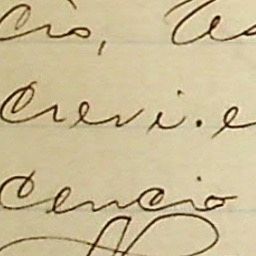 cio,
crevi. e
cencio